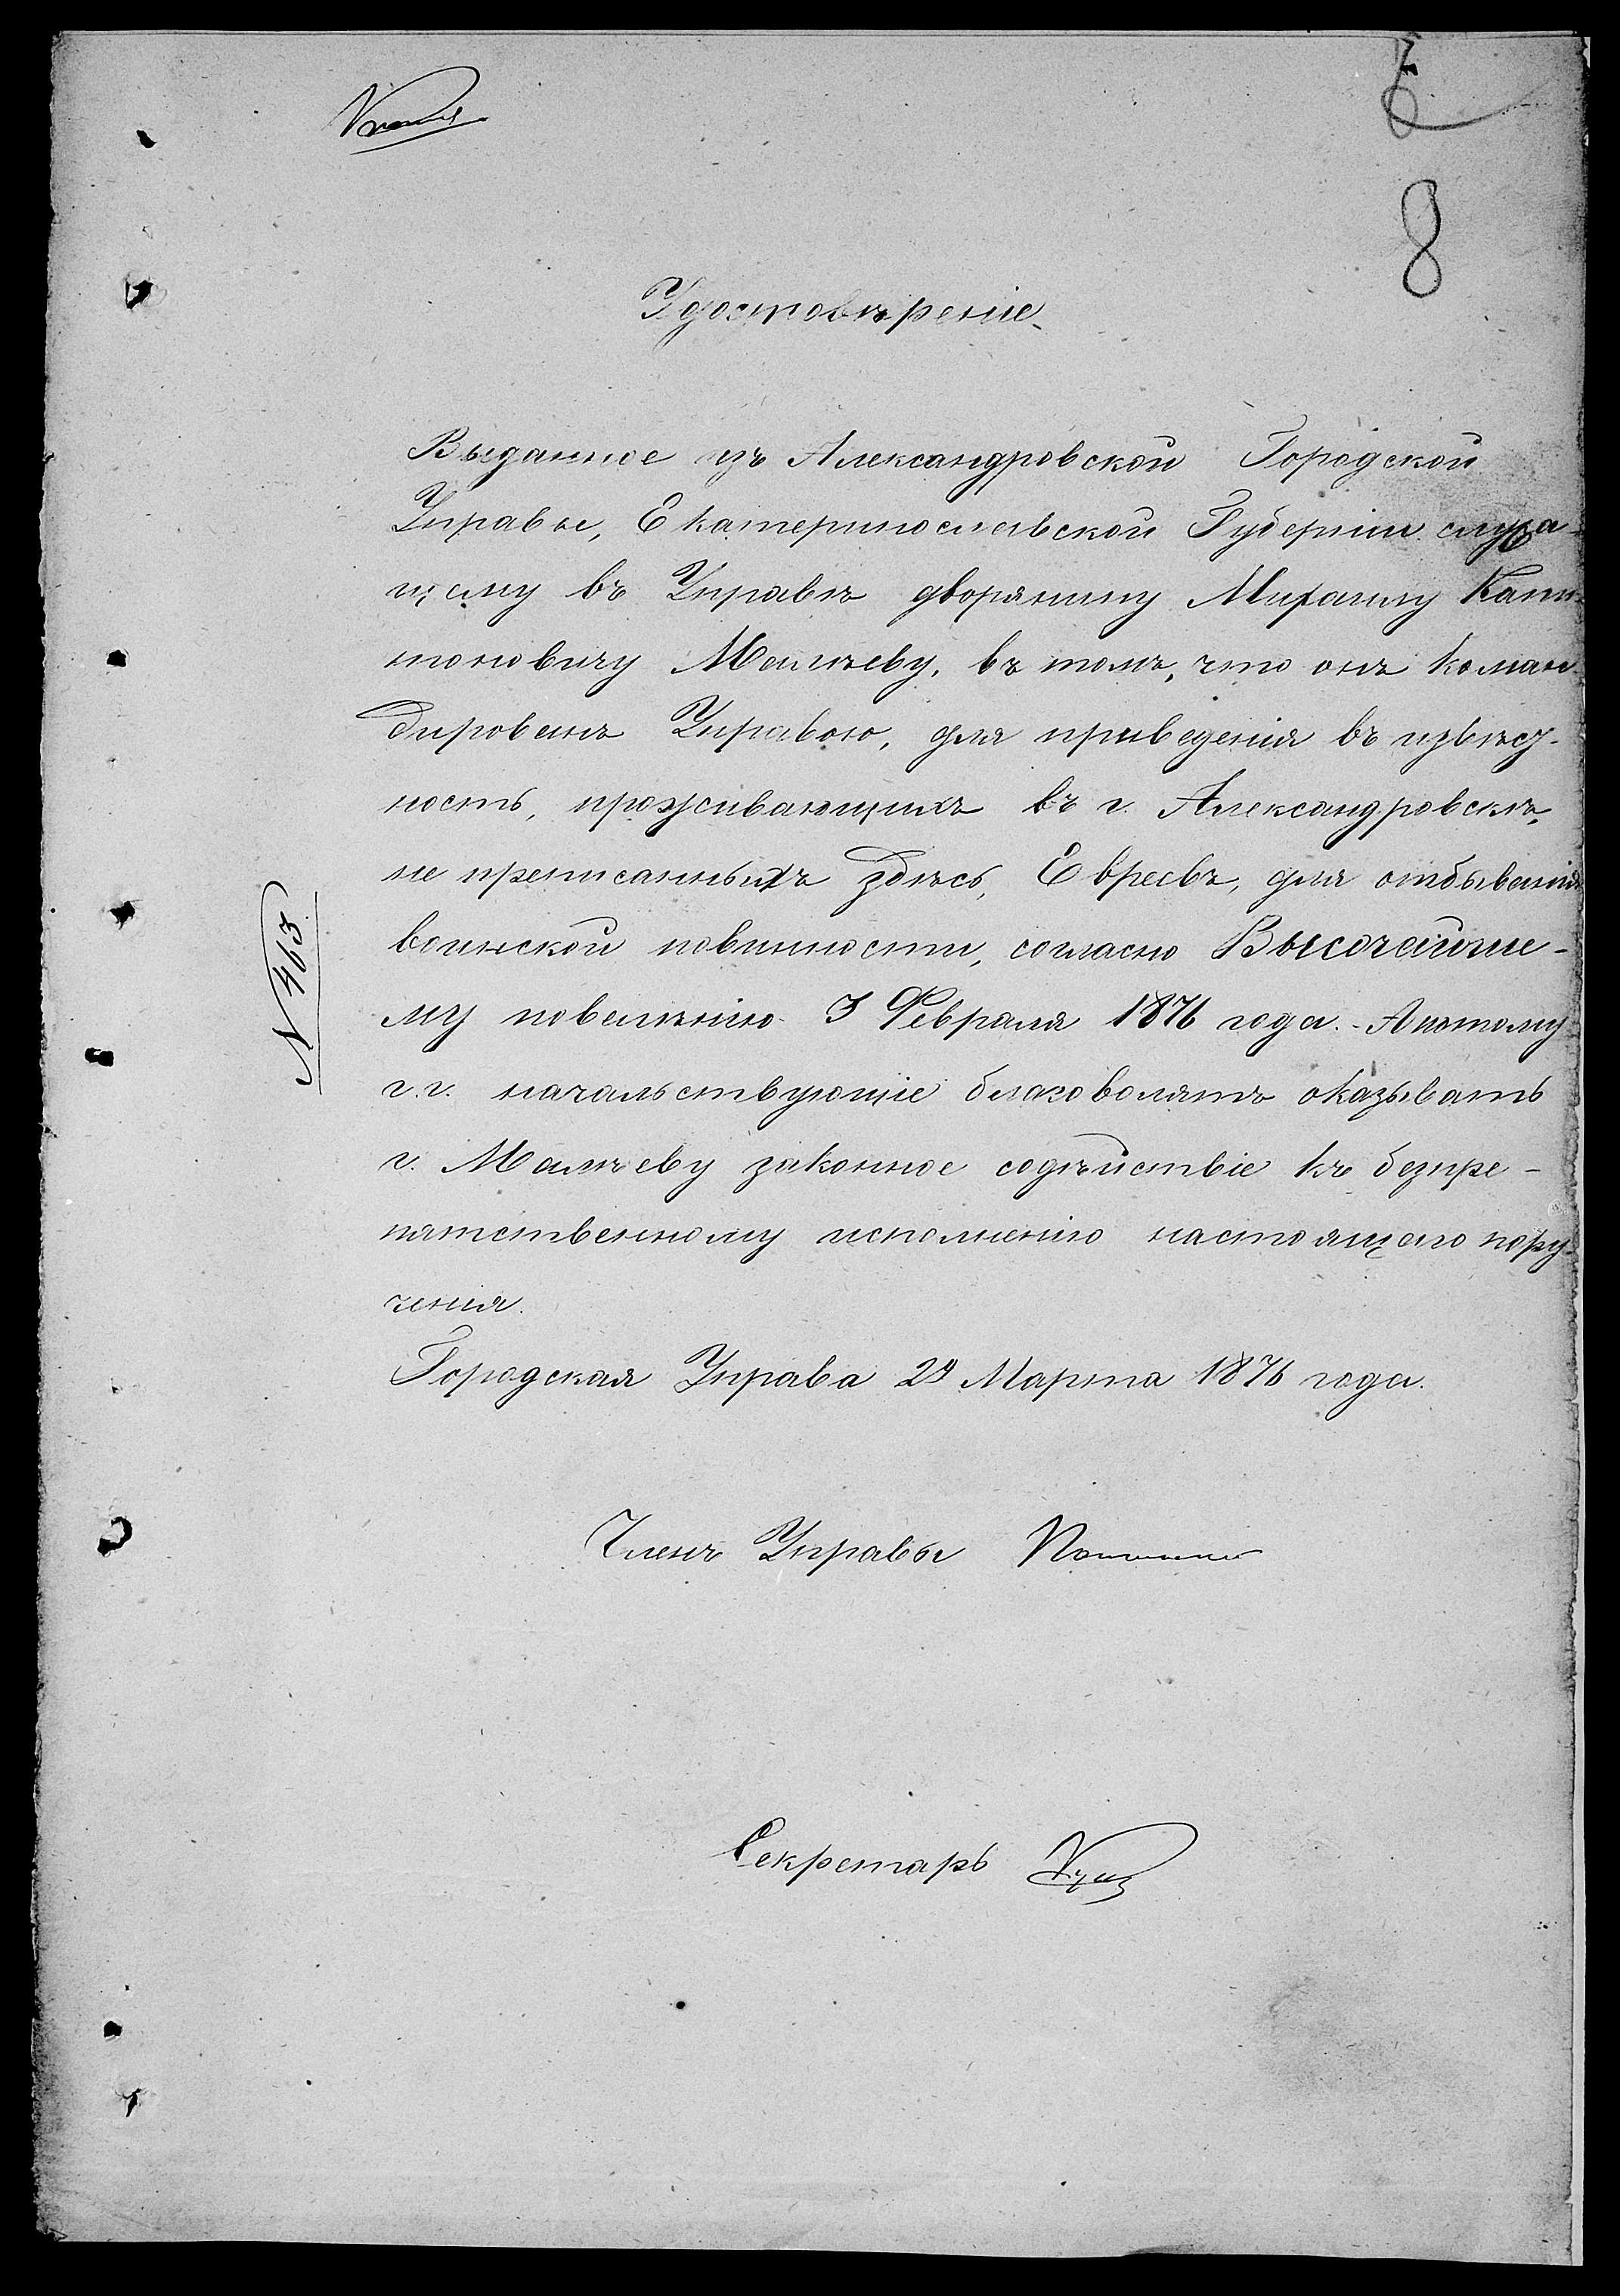 8
Удостовѣреніе.
Выданное изъ Александровской Городской
Управы, Екатеринославской Губерніи служа-
щему въ Управѣ дворянину Михаилу Капи-
тоновичу Малѣеву, въ томъ, что онъ коман-
дированъ Управою, для приведенія въ извѣст-
ность, проживающихъ въ г. Александровскѣ,
не преписанныхъ здѣсь, Евреевъ, для отбыванія
воинской повинности, согласно Высочайше-
му повелѣнію 3 Февраля 1876 года. - А потому
г.г. начальствующіе благоволятъ оказывать
г. Малѣеву законное содѣйствіе къ безпре-
пятственному исполненію настоящаго пору-
ченія.
Городская Управа 29 Марта 1876 года.
N 463
Членъ Управы
Секретарь